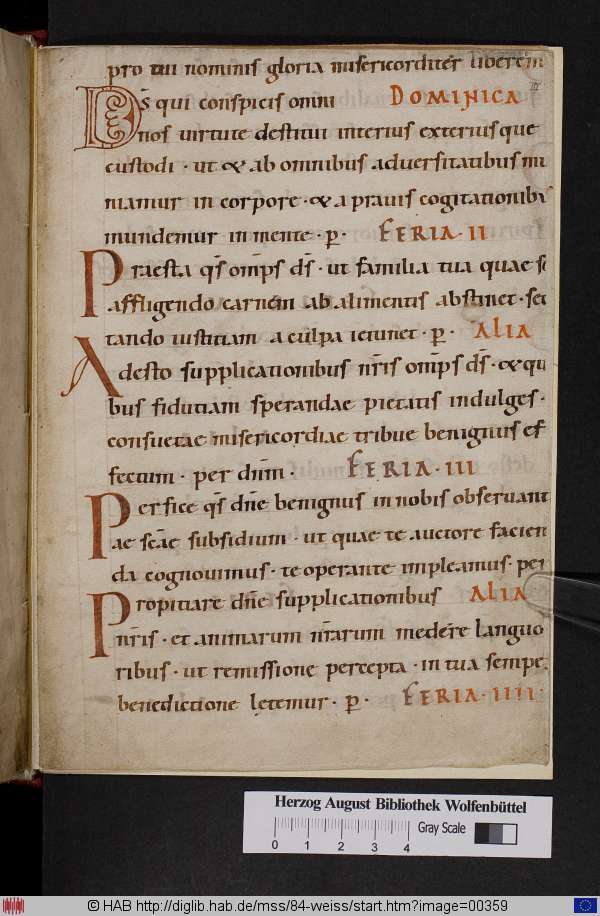 pro tui nominis gloria misericorditer liberem
Ds̄ qui conspicis omni DOMINICA
nos virtute destitui interius exteriusque
custodi · ut & ab omnibus adversitatibus mu
niamur in corpore · & a pravis cogitationibꝰ
mundemur in mente · p̄ · FERIA · II
Praesta qs̄ omps̄ ds̄ · ut familia tua quae se
affligendo carnem ab alimentis abstinet · sec
tando iustitiam a culpa ieiunet · p̄ · ALIA
Adesto supplicationibus nr̄is omps̄ ds̄ · & qui
bus fidutiam sperandae pietatis indulges ·
consuetae misericordiae tribue benignus ef
fectum · per dnm̄ · FERIA · III
Perfice qs̄ dn̄e benignus in nobis observant
ae sc̄ae subsidium · ut quae te auctore facien
da cognovimus · te operante impleamus · per
Propitiare dn̄e supplicationibus ALIA
nr̄is · et animarum nr̄arum medere languo
ribus · ut remissione percepta · in tua sempe
benedictione lętemur · p̄ · FERIA · IIII ·
Herzog August Bibliothek Wolfenbüttel
Gray Scale
0 1 2 3 4
© HAB http://diglib.hab.de/mss/84-weiss/start.htm?image=00359